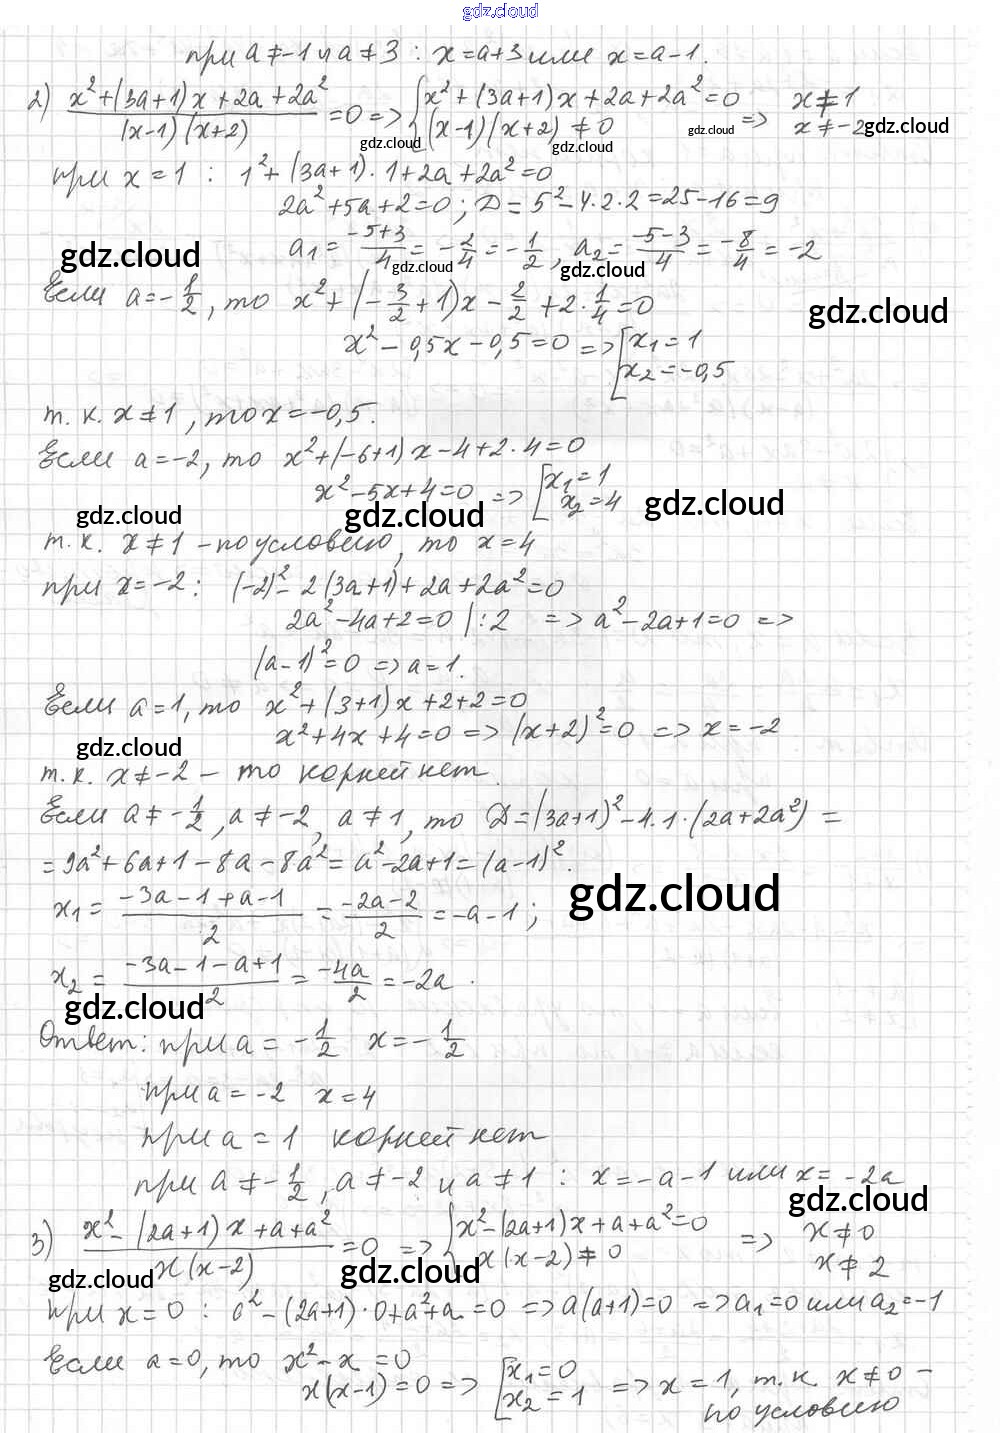 gdz.cloud
при a ≠ -1 и a ≠ 3 : x = a+3 или x = a-1.
2) (x²+(3a+1)x+2a+2a²)/((x-1)(x+2)) = 0 => { x²+(3a+1)x+2a+2a²=0 (x-1)(x+2) ≠ 0 => x ≠ 1 x ≠ -2 gdz.cloud
gdz.cloud gdz.cloud gdz.cloud
при x = 1 : 1²+(3a+1)·1+2a+2a²=0
2a²+5a+2=0; D = 5²-4·2·2=25-16=9
gdz.cloud a₁ = (-5+3)/4 = -2/4 = -1/2, a₂ = (-5-3)/4 = -8/4 = -2
gdz.cloud gdz.cloud
Если a = -1/2, то x²+(-3/2+1)x - 2/2 + 2·1/4 = 0 gdz.cloud
x²-0,5x-0,5=0 => [ x₁=1 x₂=-0,5
т.к. x ≠ 1, то x = -0,5.
Если a = -2, то x²+(-6+1)x-4+2·4=0
x²-5x+4=0 => [ x₁=1 x₂=4 gdz.cloud
gdz.cloud gdz.cloud
т.к. x ≠ 1 - по условию, то x = 4
при x = -2 : (-2)²-2(3a+1)+2a+2a²=0
2a²-4a+2=0 |:2 => a²-2a+1=0 =>
(a-1)²=0 => a=1.
Если a=1, то x²+(3+1)x+2+2=0
x²+4x+4=0 => (x+2)²=0 => x=-2
gdz.cloud
т.к. x ≠ -2 - то корней нет.
Если a ≠ -1/2, a ≠ -2, a ≠ 1, то D = (3a+1)²-4·1·(2a+2a²) =
= 9a²+6a+1-8a-8a² = a²-2a+1 = (a-1)².
gdz.cloud
x₁ = (-3a-1+a-1)/2 = (-2a-2)/2 = -a-1;
x₂ = (-3a-1-a+1)/2 = -4a/2 = -2a.
gdz.cloud
Ответ: при a = -1/2 x = -1/2
при a = -2 x = 4
при a = 1 корней нет
при a ≠ -1/2, a ≠ -2 и a ≠ 1 : x = -a-1 или x = -2a
gdz.cloud
3) (x²-(2a+1)x+a+a²)/(x(x-2)) = 0 => { x²-(2a+1)x+a+a²=0 x(x-2) ≠ 0 => x ≠ 0 x ≠ 2
gdz.cloud gdz.cloud
при x = 0 : 0²-(2a+1)·0+a²+a=0 => a(a+1)=0 => a₁=0 или a₂=-1
Если a=0, то x²-x=0
x(x-1)=0 => [ x₁=0 x₂=1 => x=1, т.к. x ≠ 0 -
по условию